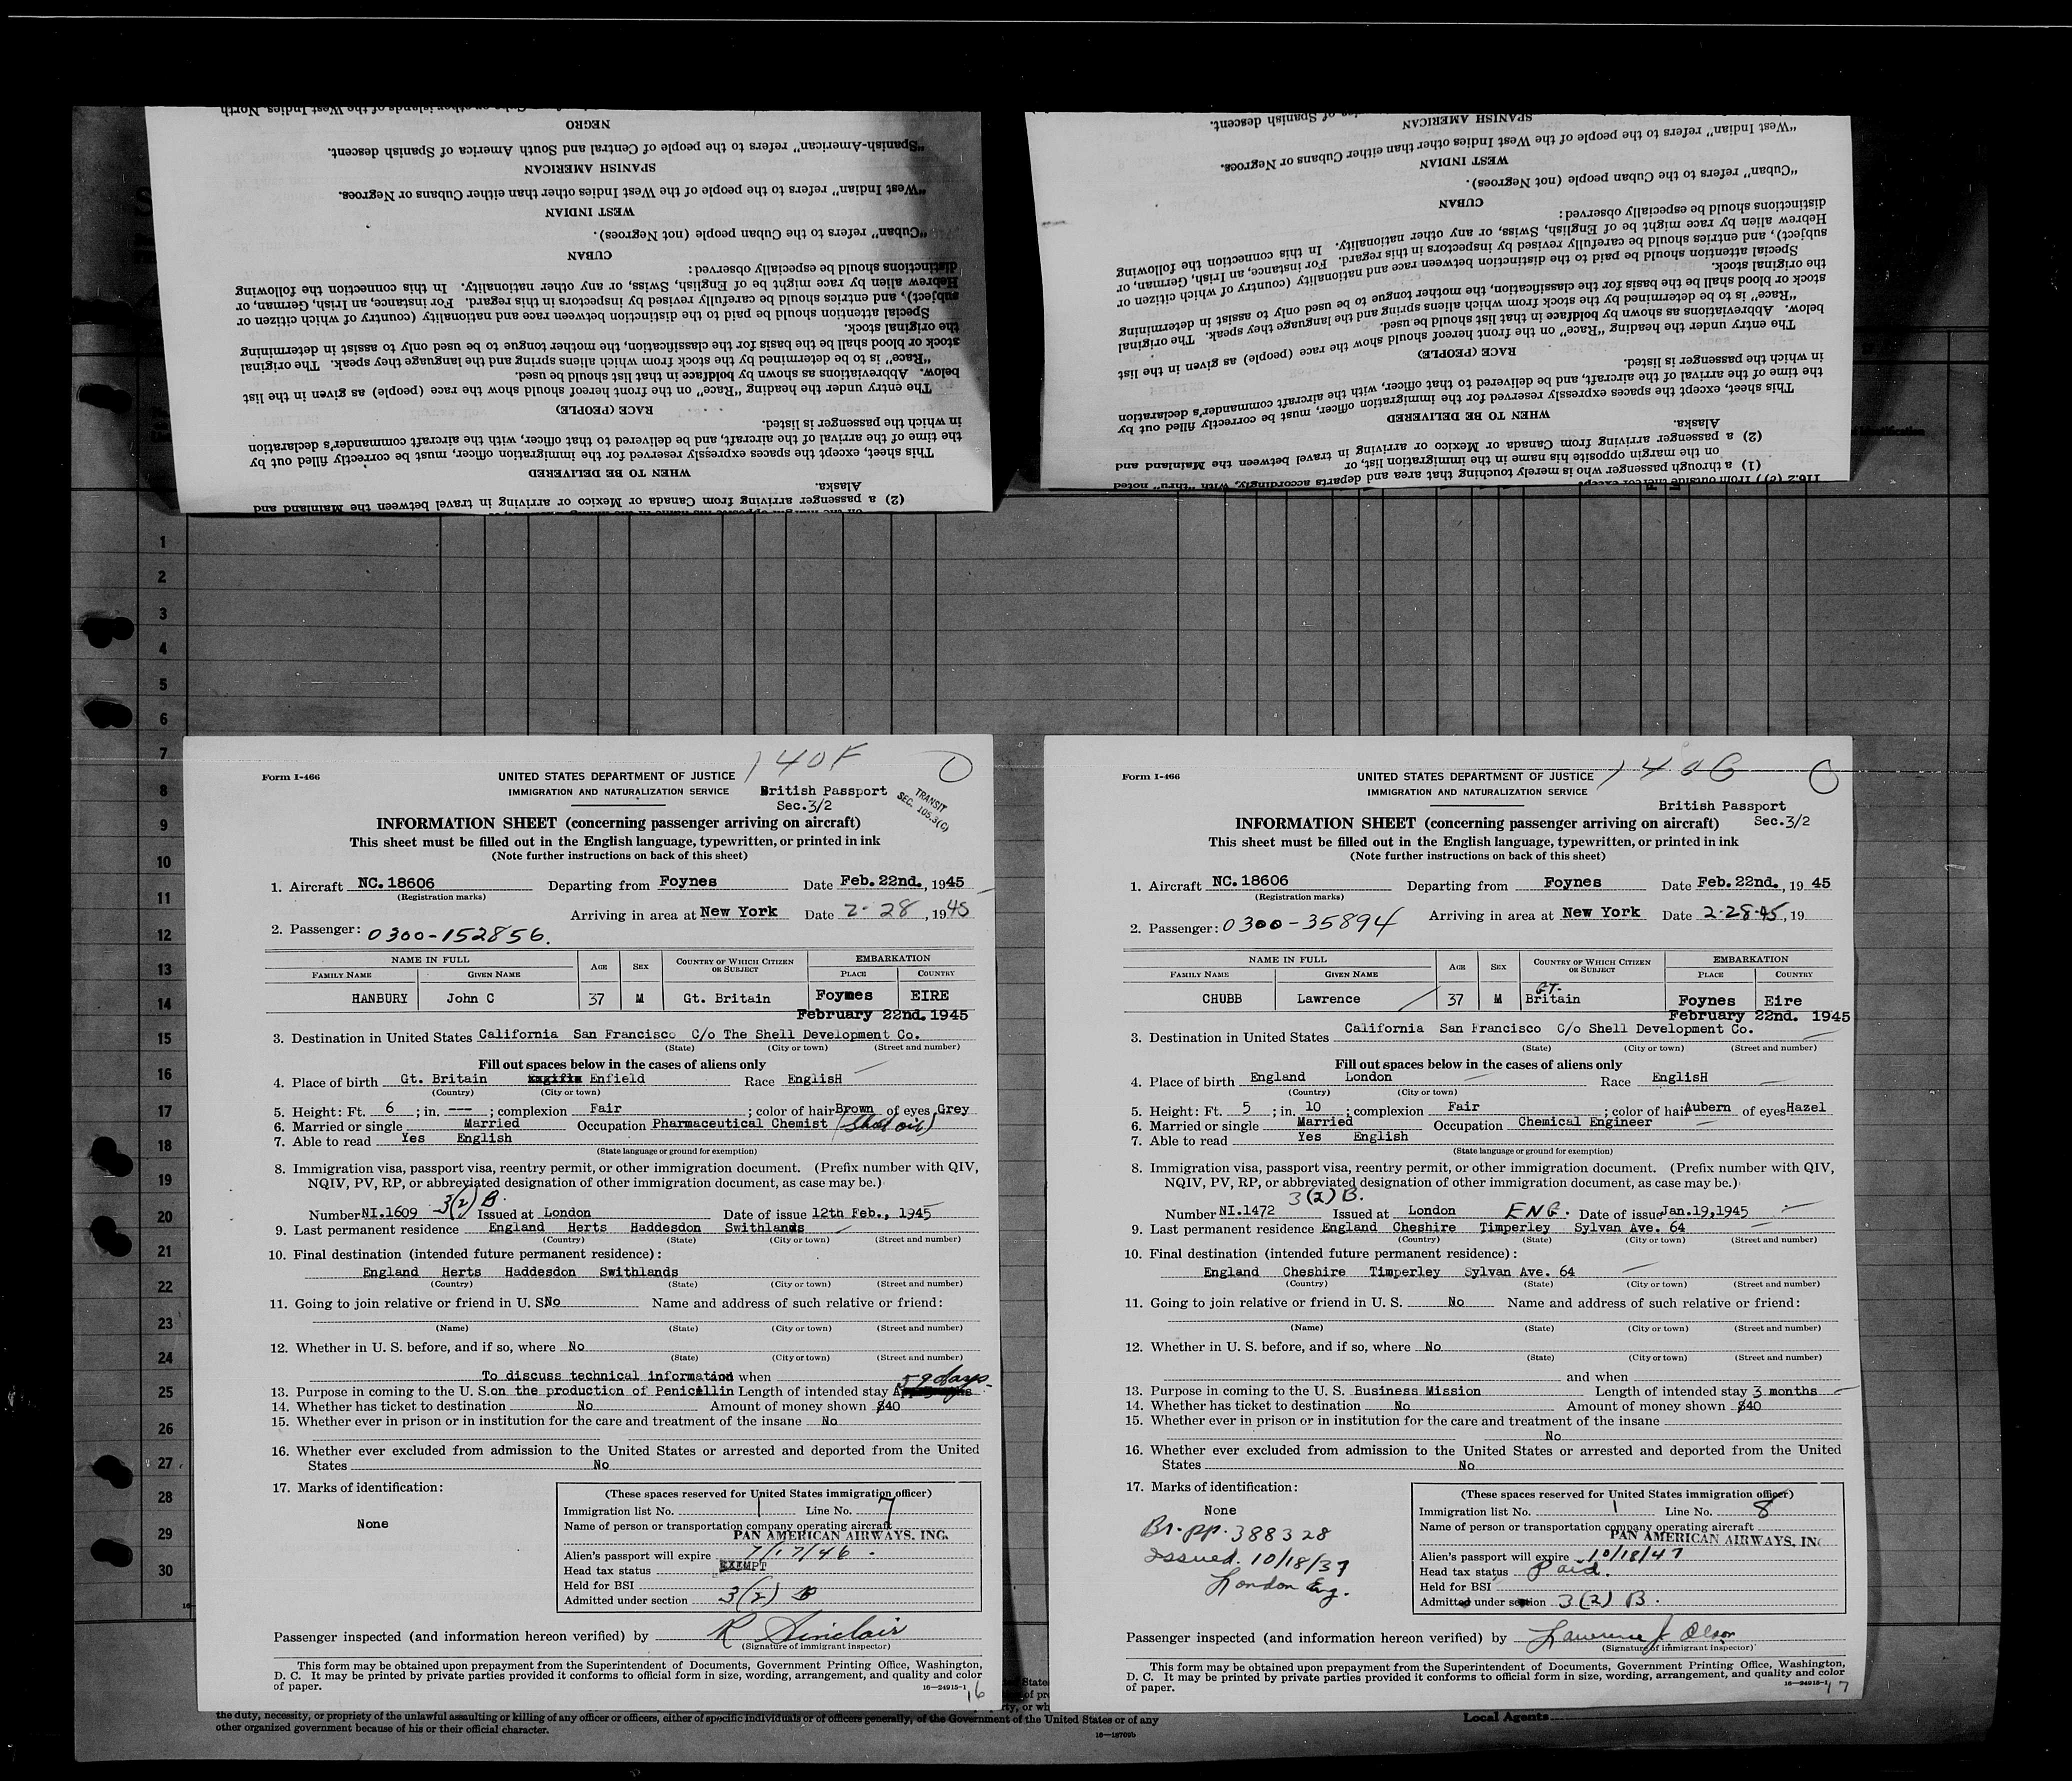 NEGRO
"Spanish-American" refers to the people of Central and South America of Spanish descent.
SPANISH AMERICAN
"West Indian" refers to the people of the West Indies other than either Cubans or Negroes.
WEST INDIAN
"Cuban" refers to the Cuban people (not Negroes).
CUBAN
distinctions should be especially observed:
Hebrew alien by race might be of English, Swiss, or any other nationality. In this connection the following
subject), and entries should be carefully revised by inspectors in this regard. For instance, an Irish, German, or
Special attention should be paid to the distinction between race and nationality (country of which citizen or
the original stock.
stock or blood shall be the basis for the classification, the mother tongue to be used only to assist in determining
"Race" is to be determined by the stock from which aliens spring and the language they speak. The original
below. Abbreviations as shown by boldface in that list should be used.
The entry under the heading "Race" on the front hereof should show the race (people) as given in the list
RACE (PEOPLE)
in which the passenger is listed.
the time of the arrival of the aircraft, and be delivered to that officer, with the aircraft commander's declaration
This sheet, except the spaces expressly reserved for the immigration officer, must be correctly filled out by
WHEN TO BE DELIVERED
Alaska.
(2) a passenger arriving from Canada or Mexico or arriving in travel between the Mainland and
SPANISH AMERICAN
"West Indian" refers to the people of the West Indies other than either Cubans or Negroes.
WEST INDIAN
"Cuban" refers to the Cuban people (not Negroes).
CUBAN
distinctions should be especially observed:
Hebrew alien by race might be of English, Swiss, or any other nationality. In this connection the following
subject), and entries should be carefully revised by inspectors in this regard. For instance, an Irish, German, or
Special attention should be paid to the distinction between race and nationality (country of which citizen or
the original stock.
stock or blood shall be the basis for the classification, the mother tongue to be used only to assist in determining
"Race" is to be determined by the stock from which aliens spring and the language they speak. The original
below. Abbreviations as shown by boldface in that list should be used.
The entry under the heading "Race" on the front hereof should show the race (people) as given in the list
RACE (PEOPLE)
in which the passenger is listed.
the time of the arrival of the aircraft, and be delivered to that officer, with the aircraft commander's declaration
This sheet, except the spaces expressly reserved for the immigration officer, must be correctly filled out by
WHEN TO BE DELIVERED
Alaska.
(2) a passenger arriving from Canada or Mexico or arriving in travel between the Mainland and
on the margin opposite his name in the immigration list, or
(1) a through passenger who is merely touching that area and departs accordingly, with "thru" noted
1
2
3
4
5
6
7
8
9
10
11
12
13
14
15
16
17
18
19
20
21
22
23
24
25
26
27
28
29
30
140F
Form I-466
UNITED STATES DEPARTMENT OF JUSTICE
IMMIGRATION AND NATURALIZATION SERVICE
British Passport
Sec.3/2
TRANSIT
SEC. 105.3(C)
INFORMATION SHEET (concerning passenger arriving on aircraft)
This sheet must be filled out in the English language, typewritten, or printed in ink
(Note further instructions on back of this sheet)
1. Aircraft NC.18606 Departing from Foynes Date Feb.22nd., 1945
(Registration marks)
Arriving in area at New York Date 2-28, 1945
2. Passenger: 0300-152856.
NAME IN FULL AGE SEX COUNTRY OF WHICH CITIZEN OR SUBJECT EMBARKATION
FAMILY NAME GIVEN NAME PLACE COUNTRY
HANBURY John C 37 M Gt. Britain Foynes EIRE
February 22nd. 1945
3. Destination in United States California San Francisco C/o The Shell Development Co.
(State) (City or town) (Street and number)
Fill out spaces below in the cases of aliens only
4. Place of birth Gt. Britain Enfield Race EnglisH
(Country) (City or town)
5. Height: Ft. 6 ; in. --- ; complexion Fair ; color of hair Brown of eyes Grey
6. Married or single Married Occupation Pharmaceutical Chemist (Shell oil)
7. Able to read Yes English
(State language or ground for exemption)
8. Immigration visa, passport visa, reentry permit, or other immigration document. (Prefix number with QIV,
NQIV, PV, RP, or abbreviated designation of other immigration document, as case may be.)
3(2) B.
Number NI.1609 Issued at London Date of issue 12th Feb., 1945
9. Last permanent residence England Herts Haddesdon Swithlands
(Country) (State) (City or town) (Street and number)
10. Final destination (intended future permanent residence):
England Herts Haddesdon Swithlands
(Country) (State) (City or town) (Street and number)
11. Going to join relative or friend in U. S. No Name and address of such relative or friend:
(Name) (State) (City or town) (Street and number)
12. Whether in U. S. before, and if so, where No
(State) (City or town) (Street and number)
To discuss technical information and when 59 days
13. Purpose in coming to the U. S. on the production of Penicillin Length of intended stay
14. Whether has ticket to destination No Amount of money shown $40
15. Whether ever in prison or in institution for the care and treatment of the insane No
16. Whether ever excluded from admission to the United States or arrested and deported from the United
States No
17. Marks of identification:
None
(These spaces reserved for United States immigration officer)
Immigration list No. 1 Line No. 7
Name of person or transportation company operating aircraft
PAN AMERICAN AIRWAYS, INC.
Alien's passport will expire 7/17/46
Head tax status EXEMPT
Held for BSI
Admitted under section 3(2) B
Passenger inspected (and information hereon verified) by R Sinclair
(Signature of immigrant inspector)
This form may be obtained upon prepayment from the Superintendent of Documents, Government Printing Office, Washington,
D. C. It may be printed by private parties provided it conforms to official form in size, wording, arrangement, and quality and color
of paper.
16—24915-1
16
140G
Form I-466
UNITED STATES DEPARTMENT OF JUSTICE
IMMIGRATION AND NATURALIZATION SERVICE
British Passport
Sec.3/2
INFORMATION SHEET (concerning passenger arriving on aircraft)
This sheet must be filled out in the English language, typewritten, or printed in ink
(Note further instructions on back of this sheet)
1. Aircraft NC.18606 Departing from Foynes Date Feb.22nd., 19 45
(Registration marks)
Arriving in area at New York Date 2-28-45, 19
2. Passenger: 0300-35894
NAME IN FULL AGE SEX COUNTRY OF WHICH CITIZEN OR SUBJECT EMBARKATION
FAMILY NAME GIVEN NAME PLACE COUNTRY
CHUBB Lawrence 37 M GT. Britain Foynes Eire
February 22nd. 1945
3. Destination in United States California San Francisco C/o Shell Development Co.
(State) (City or town) (Street and number)
Fill out spaces below in the cases of aliens only
4. Place of birth England London Race EnglisH
(Country) (City or town)
5. Height: Ft. 5 ; in. 10 ; complexion Fair ; color of hair Aubern of eyes Hazel
6. Married or single Married Occupation Chemical Engineer
7. Able to read Yes English
(State language or ground for exemption)
8. Immigration visa, passport visa, reentry permit, or other immigration document. (Prefix number with QIV,
NQIV, PV, RP, or abbreviated designation of other immigration document, as case may be.)
3(2) B.
Number NI.1472 Issued at London ENG. Date of issue Jan.19,1945
9. Last permanent residence England Cheshire Timperley Sylvan Ave. 64
(Country) (State) (City or town) (Street and number)
10. Final destination (intended future permanent residence):
England Cheshire Timperley Sylvan Ave. 64
(Country) (State) (City or town) (Street and number)
11. Going to join relative or friend in U. S. No Name and address of such relative or friend:
(Name) (State) (City or town) (Street and number)
12. Whether in U. S. before, and if so, where No
(State) (City or town) (Street and number)
and when
13. Purpose in coming to the U. S. Business Mission Length of intended stay 3 months
14. Whether has ticket to destination No Amount of money shown $40
15. Whether ever in prison or in institution for the care and treatment of the insane
No
16. Whether ever excluded from admission to the United States or arrested and deported from the United
States No
17. Marks of identification:
None
Br. pp. 388328
Issued 10/18/37
London Eng.
(These spaces reserved for United States immigration officer)
Immigration list No. 1 Line No. 8
Name of person or transportation company operating aircraft
PAN AMERICAN AIRWAYS, INC
Alien's passport will expire 10/18/47
Head tax status Paid.
Held for BSI
Admitted under section 3(2) B.
Passenger inspected (and information hereon verified) by Lawrence J Olson
(Signature of immigrant inspector)
This form may be obtained upon prepayment from the Superintendent of Documents, Government Printing Office, Washington,
D. C. It may be printed by private parties provided it conforms to official form in size, wording, arrangement, and quality and color
of paper.
16—24915-1
17
the duty, necessity, or propriety of the unlawful assaulting or killing of any officer or officers, either of specific individuals or of officers generally, of the Government of the United States or of any
other organized government because of his or their official character.
16—18709b
Local Agents